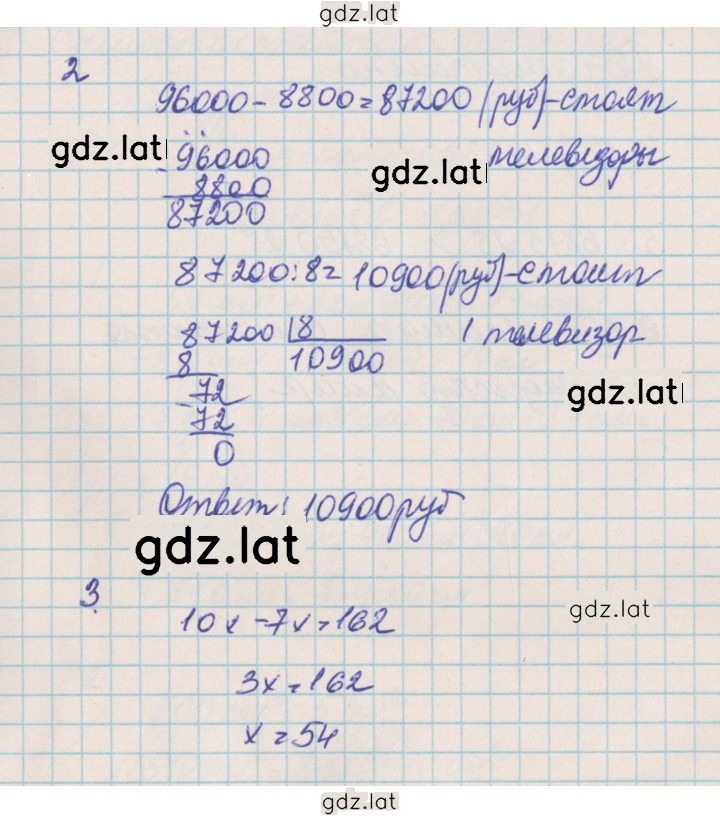 gdz.lat
2
96000 - 8800 = 87200 (руб) - стоят
телевизоры
gdz.lat
gdz.lat
- 96000
8800
87200
87200 : 8 = 10900 (руб) - стоит
1 телевизор
87200 | 8
8 10900
gdz.lat
- 72
72
0
Ответ: 10900 руб
gdz.lat
3.
gdz.lat
10x - 7x = 162
3x = 162
x = 54
gdz.lat